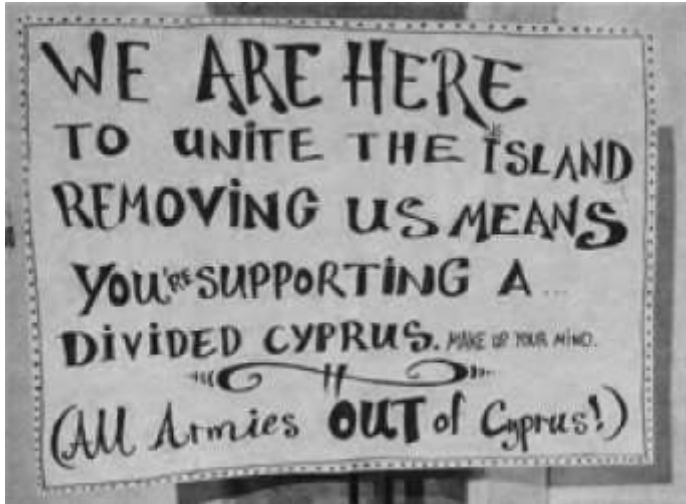 WE ARE HERE
TO UNITE THE ISLAND
REMOVING US MEANS
YOU'RE SUPPORTING A ...
DIVIDED CYPRUS. MAKE UP YOUR MIND.
(All Armies OUT of Cyprus!)